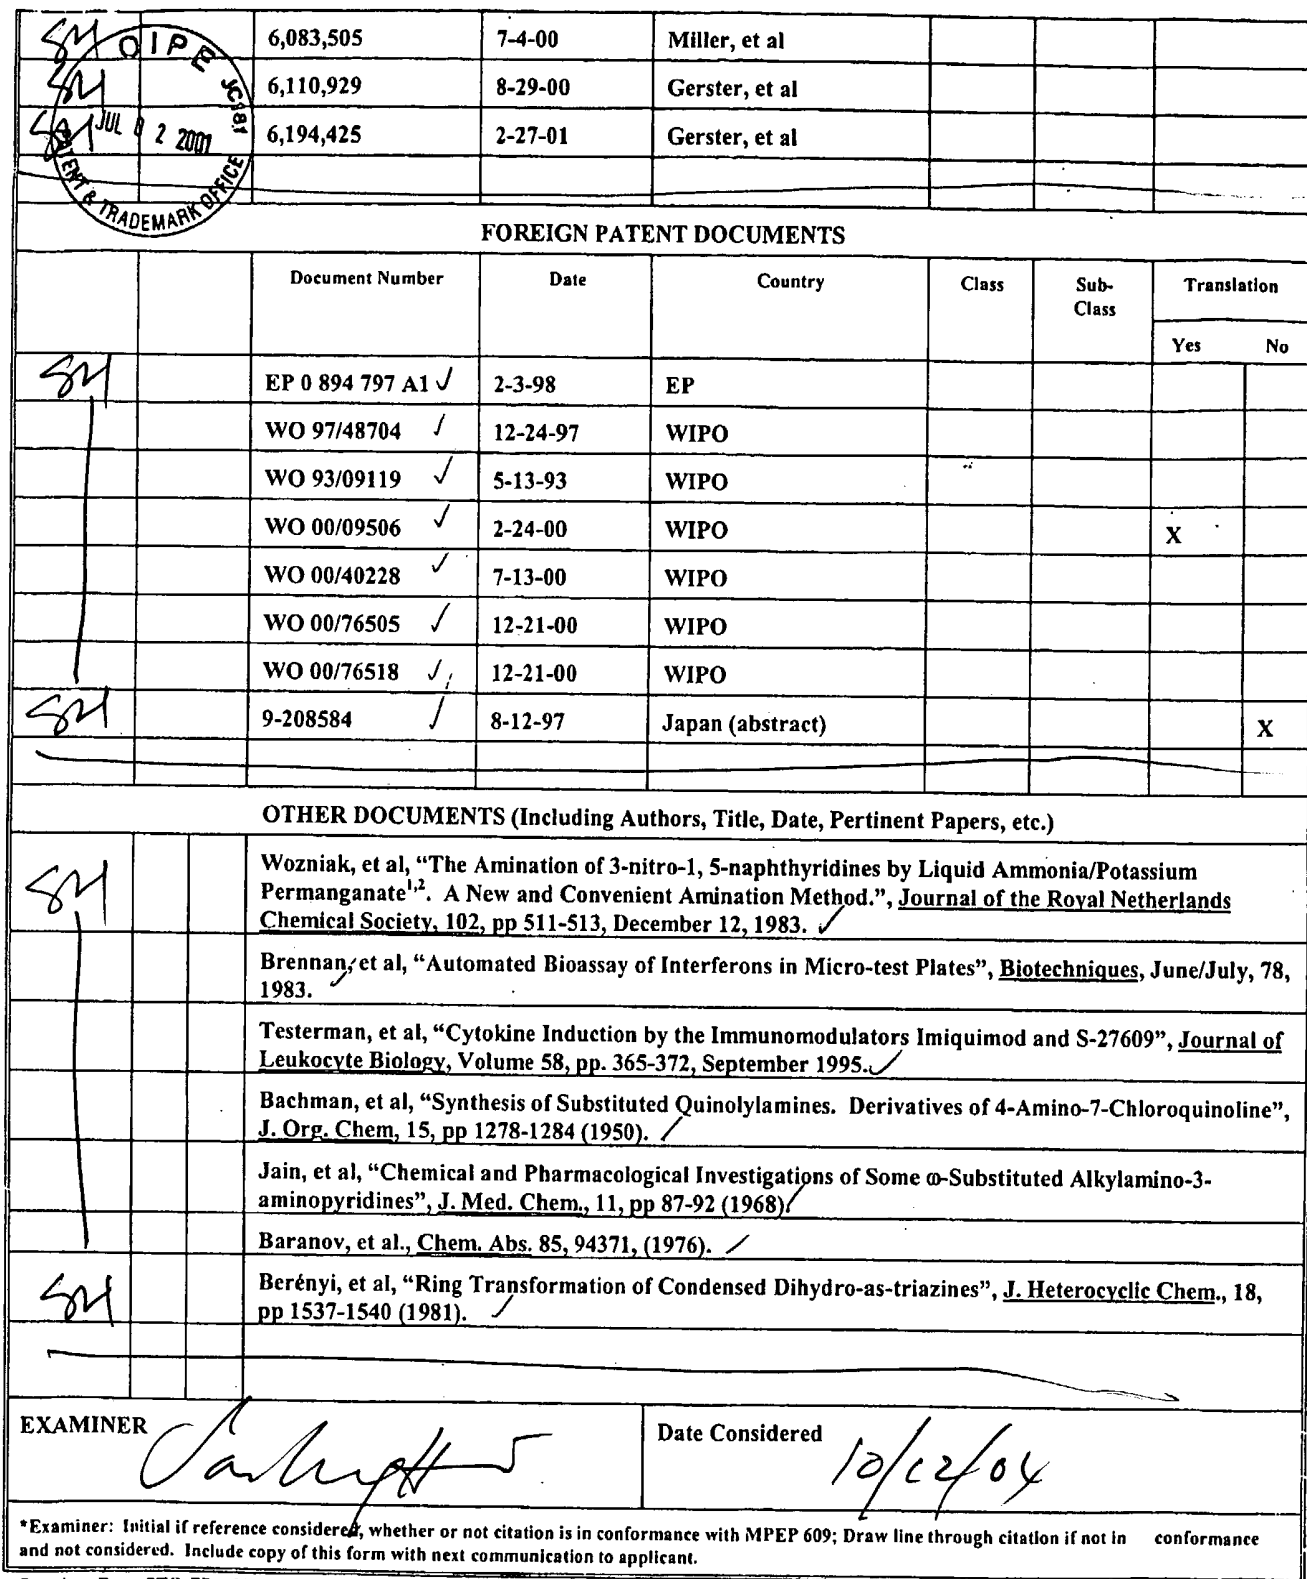 SM 6,083,505 7-4-00 Miller, et al
SM 6,110,929 8-29-00 Gerster, et al
SM 6,194,425 2-27-01 Gerster, et al
OIPE JC181
JUL 0 2 2001
PATENT & TRADEMARK OFFICE
FOREIGN PATENT DOCUMENTS
Document Number Date Country Class Sub-Class Translation
Yes No
SM EP 0 894 797 A1 ✓ 2-3-98 EP
WO 97/48704 ✓ 12-24-97 WIPO
WO 93/09119 ✓ 5-13-93 WIPO
WO 00/09506 ✓ 2-24-00 WIPO X
WO 00/40228 ✓ 7-13-00 WIPO
WO 00/76505 ✓ 12-21-00 WIPO
WO 00/76518 ✓ 12-21-00 WIPO
SM 9-208584 ✓ 8-12-97 Japan (abstract) X
OTHER DOCUMENTS (Including Authors, Title, Date, Pertinent Papers, etc.)
SM Wozniak, et al, “The Amination of 3-nitro-1, 5-naphthyridines by Liquid Ammonia/Potassium
Permanganate1,2. A New and Convenient Amination Method.”, Journal of the Royal Netherlands
Chemical Society, 102, pp 511-513, December 12, 1983. ✓
Brennan, et al, “Automated Bioassay of Interferons in Micro-test Plates”, Biotechniques, June/July, 78,
1983. ✓
Testerman, et al, “Cytokine Induction by the Immunomodulators Imiquimod and S-27609”, Journal of
Leukocyte Biology, Volume 58, pp. 365-372, September 1995. ✓
Bachman, et al, “Synthesis of Substituted Quinolylamines. Derivatives of 4-Amino-7-Chloroquinoline”,
J. Org. Chem, 15, pp 1278-1284 (1950). ✓
Jain, et al, “Chemical and Pharmacological Investigations of Some ω-Substituted Alkylamino-3-
aminopyridines”, J. Med. Chem., 11, pp 87-92 (1968) ✓
Baranov, et al., Chem. Abs. 85, 94371, (1976). ✓
SM Berényi, et al, “Ring Transformation of Condensed Dihydro-as-triazines”, J. Heterocyclic Chem., 18,
pp 1537-1540 (1981). ✓
EXAMINER Date Considered 10/12/04
*Examiner: Initial if reference considered, whether or not citation is in conformance with MPEP 609; Draw line through citation if not in conformance
and not considered. Include copy of this form with next communication to applicant.